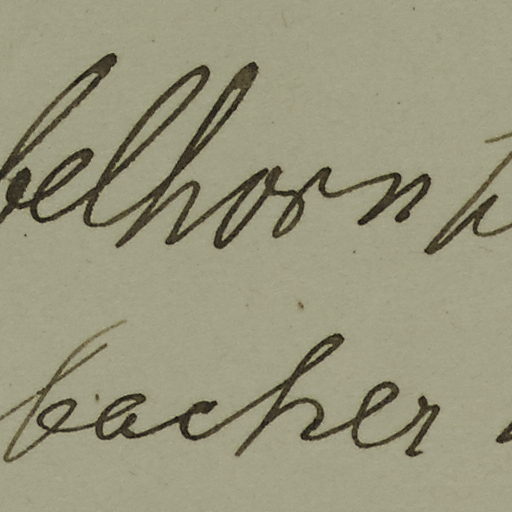 belhorn
bacher